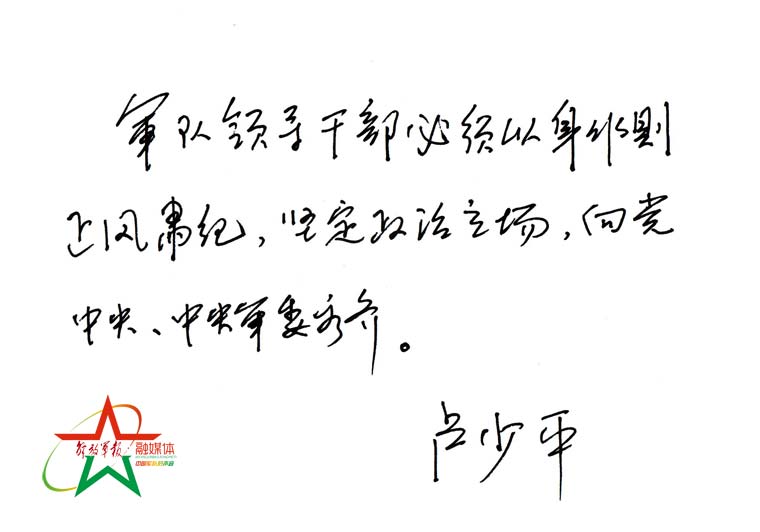 军队领导干部必须以身作则
正风肃纪，坚定政治立场，向党
中央、中央军委看齐。
卢少平
解放军报 融媒体
中国军队的声音